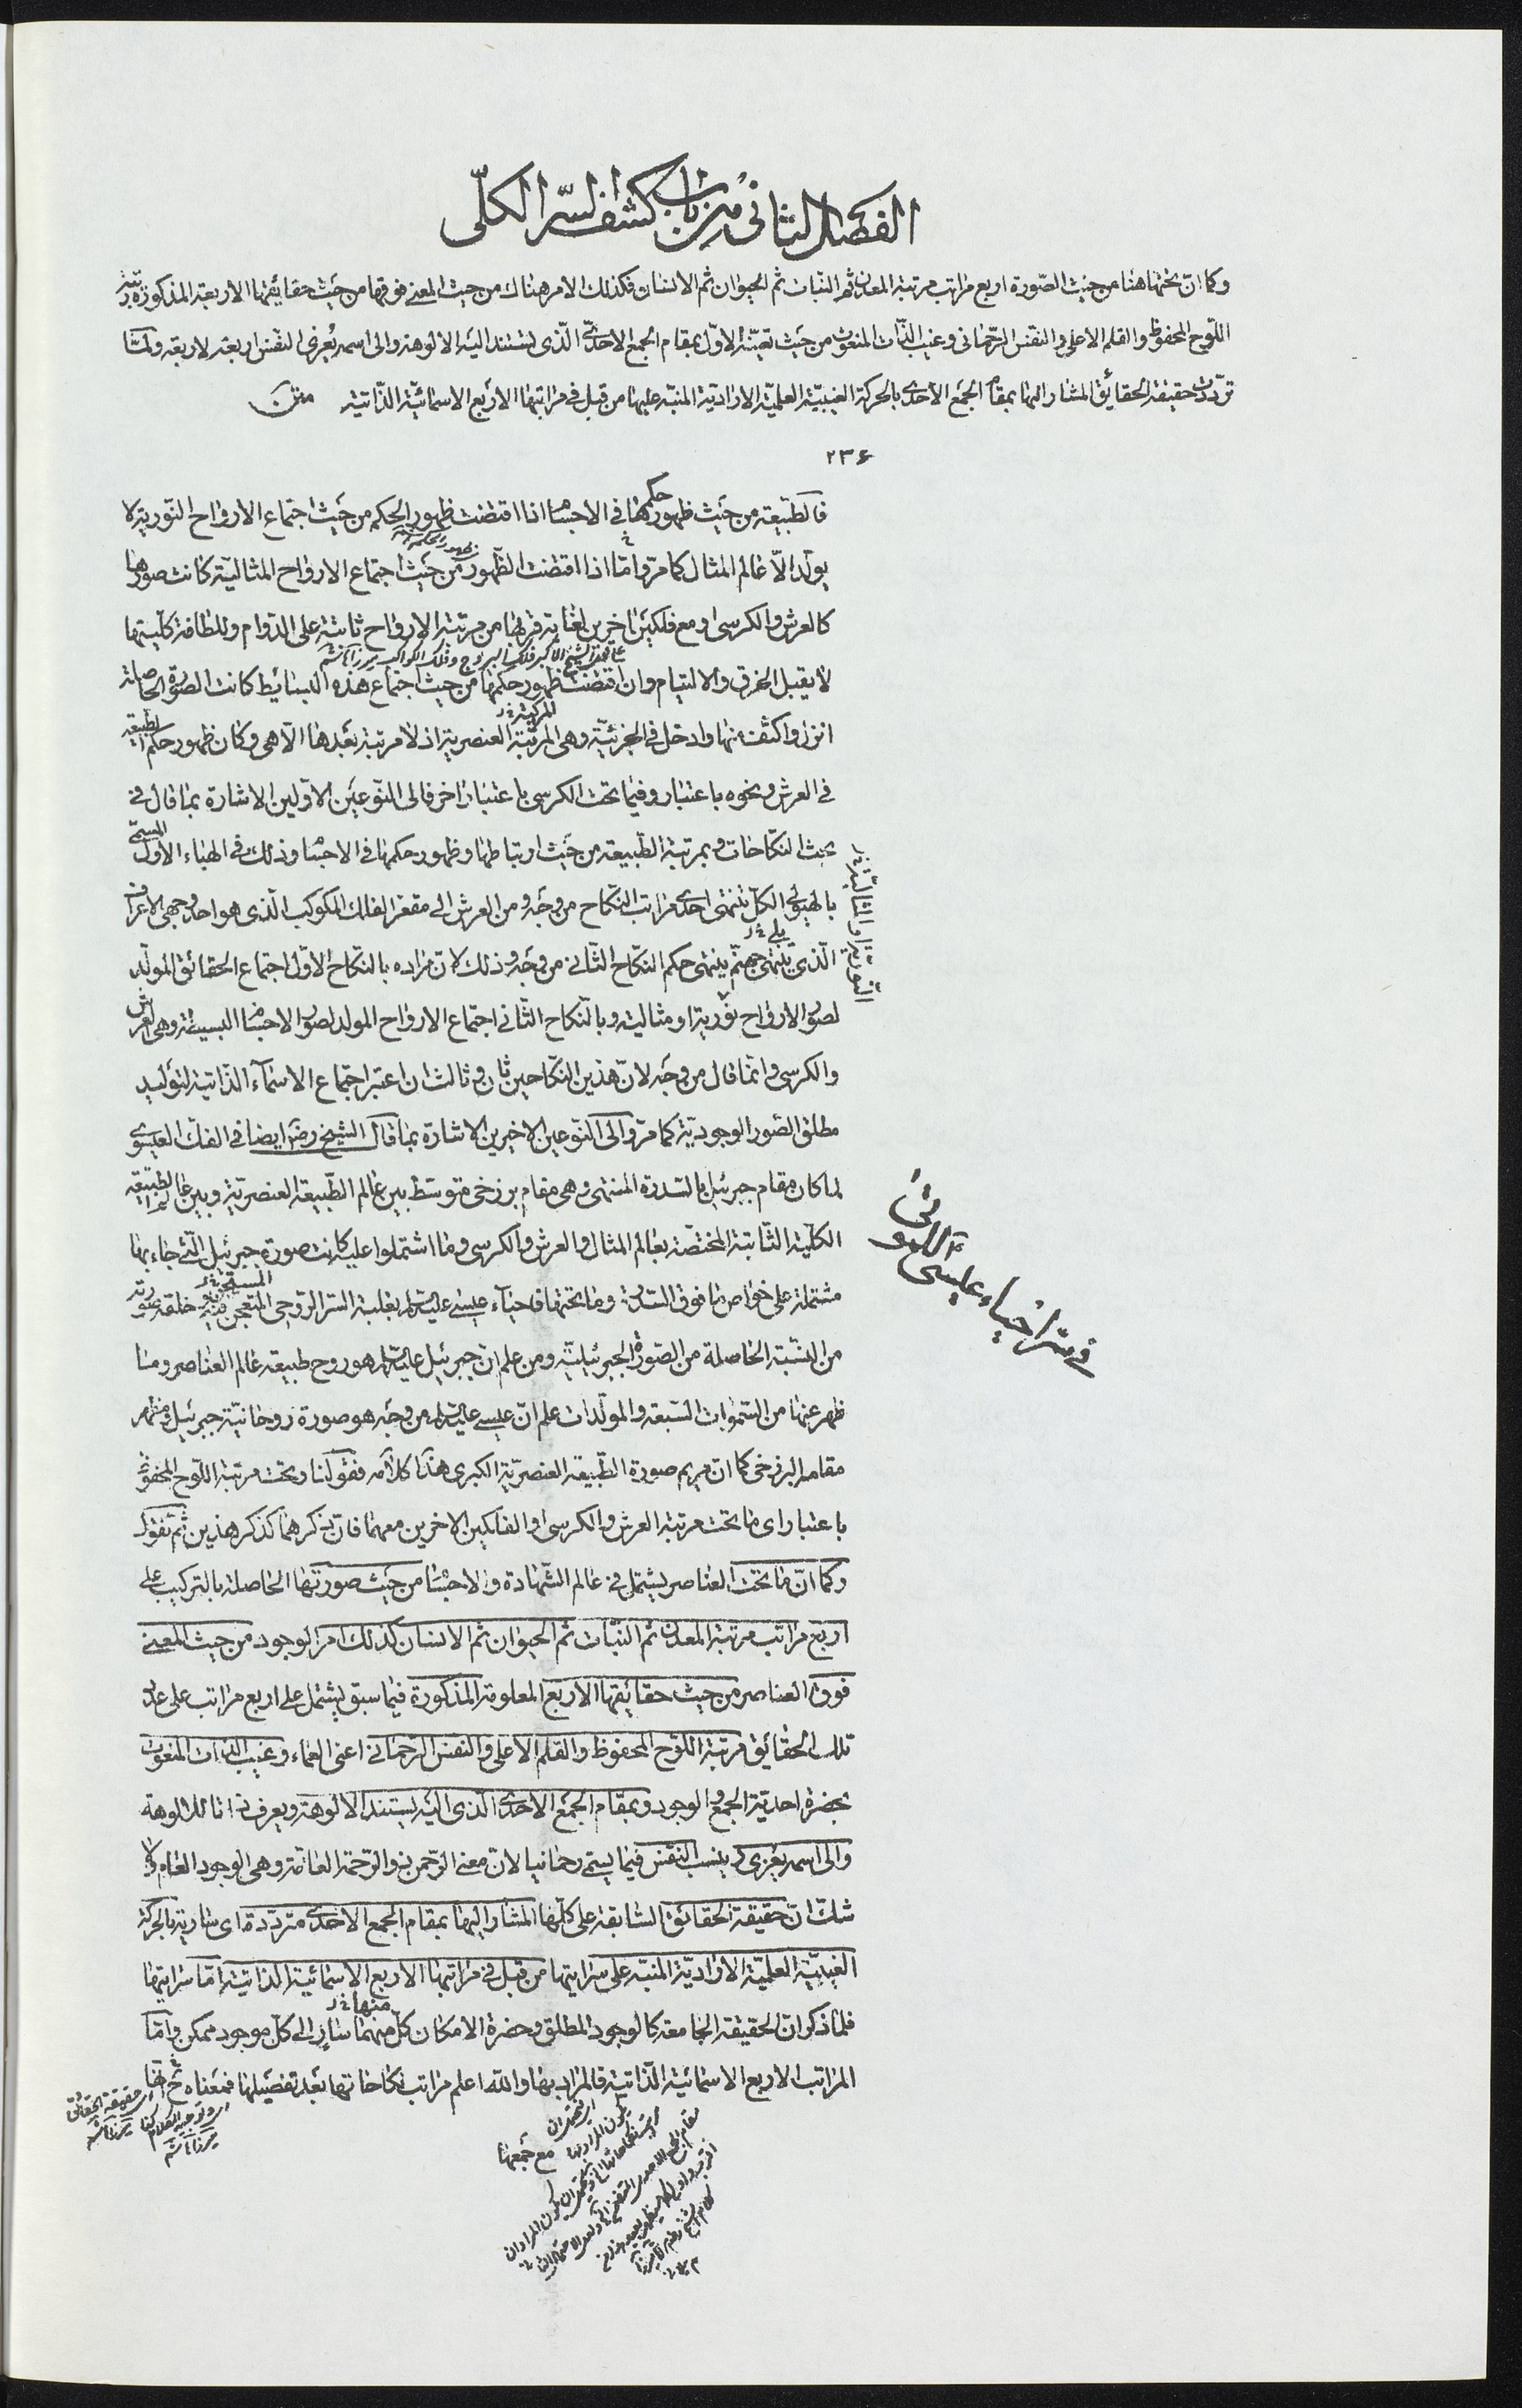 الفصل الثانى من باب كشف السر الكلى
وكما ان تحتها هنا من حيث الصورة اربع مراتب مرتبة المعدن ثم النبات ثم الحيوان ثم الانسان فكذلك الامر هناك من حيث المعنى فوقها من حيث حقائقها الاربعة المذكورة مرتبة
اللوح المحفوظ والقلم الاعلى والنفس الرحمانى وغيب الذات المنعوت من حيث تعينه الاول بمقام الجمع الاحدى الذى تستند اليه الالوهة والى اسمه يعزى النفس اربعة لاربعة ولما
ترددت حقيقة الحقائق المشار اليها بمقام الجمع الاحدى بالحركة الغيبية العلمية الارادية المنبه عليها من قبل فى مراتبها الاربع الاسمائية الذاتية متن
٢٣۶
فالطبيعة من حيث ظهور حكمها فى الاجسام اذا اقتضت ظهور الحكم من حيث اجتماع الارواح النورية لا
يولد الا عالم المثال كما مر واما اذا اقتضت الظهور من حيث اجتماع الارواح المثالية كانت صورها
كالعرش والكرسى او مع فلكين اخرين لغاية قربها من مرتبة الارواح ثابتة على الدوام وللطافة كليتها
على قول الشيخ الاكبر فلك البروج وفلك الكواكب ميرزا هاشم
لا يقبل الخرق والالتيام وان اقتضت ظهور حكمها من حيث اجتماع هذه البسائط كانت الصورة الحاصلة
المركبة خ ل
انزل واكثف منها وادخل فى الجزئية وهى المرتبة العنصرية اذ لا مرتبة بعدها الا هى وكان ظهور حكم الطبيعة
فى العرش ونحوه باعتبار وفيما تحت الكرسى باعتبار اخر فالى النوعين الاولين الاشارة بما قال فى
بحث النكاحات وبمرتبة الطبيعة من حيث ارتباطها وظهور حكمها فى الاجسام وذلك فى الهباء الاول المسمى
بالهيولى الكل تنتهى احدى مراتب النكاح من وجه ومن العرش الى مقعر الفلك المكوكب الذى هو احد وجهى الاعراف
الذى تنتهى جهنم ينتهى حكم النكاح الثانى من وجه وذلك لان مراده بالنكاح الاول اجتماع الحقائق المولد
لصور الارواح نورية او مثالية وبالنكاح الثانى اجتماع الارواح المولد لصور الاجسام البسيطة وهى العرش
والكرسى وانما قال من وجه لان هذين النكاحين ثان وثالث ان اعتبر اجتماع الاسماء الذاتية لتوليد
مطلق الصور الوجودية كما مر والى النوعين الاخيرين الاشارة بما قال الشيخ رضه ايضا فى الفك العيسوى
لما كان مقام جبرئيل بالسدرة المنتهى وهى مقام برزخى متوسط بين عالم الطبيعة العنصرية وبين عالم الطبيعة
الكلية الثابتة المختصة بعالم المثال والعرش والكرسى وما اشتملوا عليه كانت صورة جبرئيل التى جاء بها
فى سر احياء عيسى الموتى
مشتملة على خواص ما فوق السدرة وما تحتها فاحياء عيسى عليه السلم بغلبة السر الروحى خلقة صورته
من النسبة الحاصلة من الصورة الجبرئيلية ومن علم ان جبرئيل عليه السلم هو روح طبيعة عالم العناصر وما
ظهر عنها من السموات السبعة والمولدات علم ان عيسى عليه السلم من وجه هو صورة روحانية جبرئيل ومظهر
مقامه البرزخى كما ان مريم صورة الطبيعة العنصرية الكبرى هذا كلامه فقولنا وتحت مرتبة اللوح المحفوظ
باعتبار اى ما تحت مرتبة العرش والكرسى او الفلكين الاخرين معهما فان ذكرهما كذكر هذين ثم نقول
وكما ان ما تحت العناصر يشتمل فى عالم الشهادة والاجسام من حيث صورتها الحاصلة بالتركيب على
اربع مراتب مرتبة المعدن ثم النبات ثم الحيوان ثم الانسان كذلك امر الوجود من حيث المعنى
فوق العناصر من حيث حقائقها الاربع المعلومة المذكورة فيما سبق يشتمل على اربع مراتب على عدد
تلك الحقائق مرتبة اللوح المحفوظ والقلم الاعلى والنفس الرحمانى اعنى العماء وغيب الذات المنعوت
بحضرة احدية الجمع والوجود وبمقام الجمع الاحدى الذى اليه يستند الالوهة ويعرف
والى اسمه يعزى ينسب النفس فيما يسمى رحمانيا لان معنى الرحمن ذو الرحمة العامة وهى الوجود العام ولا
شك ان حقيقة الحقائق السابقة على كلها المشار اليها بمقام الجمع الاحدى مترددة اى سارية بالحركة
الغيبية العلمية الارادية المنبه على سرايتها من قبل فى مراتبها الاربع الاسمائية الذاتية اما سرايتها
منها خ ل
فلما ذكر ان الحقيقة الجامعة كالوجود المطلق وحضرة الامكان كل منهما سار الى كل موجود ممكن واما
المراتب الاربع الاسمائية الذاتية فالمراد بها والله اعلم مراتب نكاحاتها بعد تفصيلها فمعناه ح انها
اى حقيقة الحقائق ميرزا هاشم